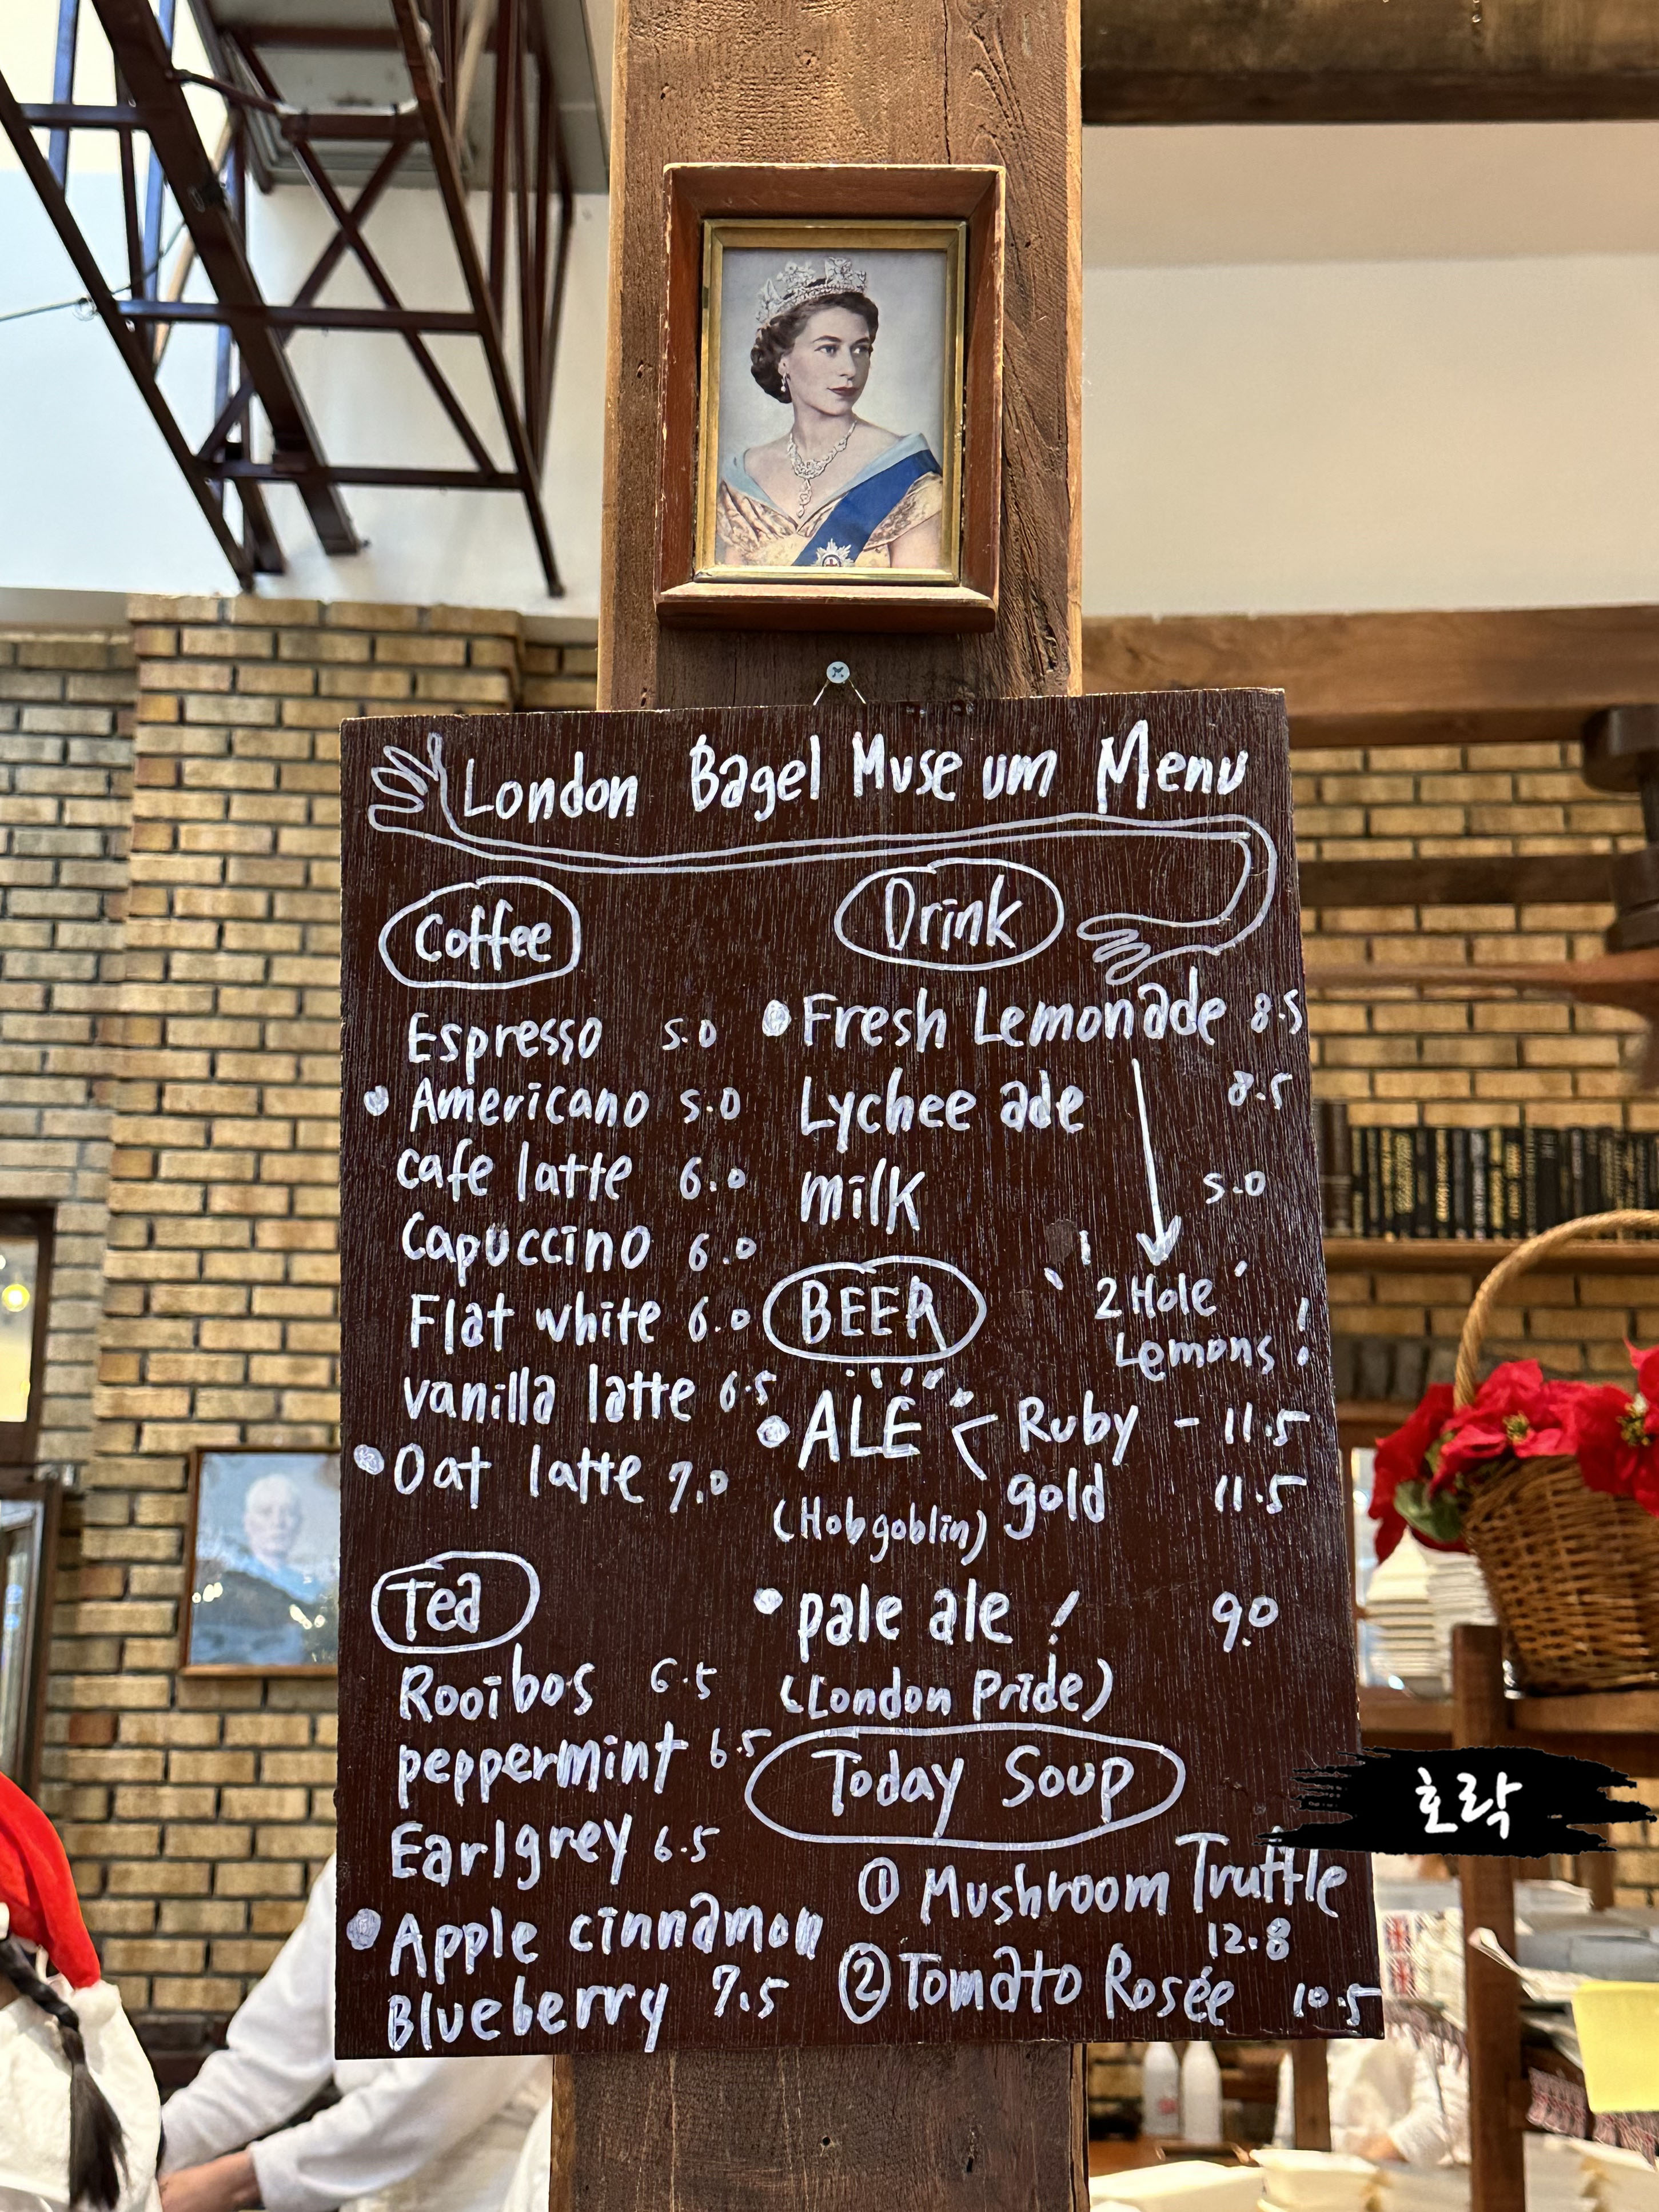 London Bagel Museum Menu
Coffee
Espresso 5.0
Americano 5.0
cafe latte 6.0
Capuccino 6.0
Flat white 6.0
vanilla latte 6.5
Oat latte 7.0
Tea
Rooibos 6.5
peppermint 6.5
Earlgrey 6.5
Apple cinnamon
Blueberry 7.5
Drink
Fresh Lemonade 8.5
Lychee ade 8.5
milk 5.0
2 Hole
Lemons!
BEER
ALE Ruby - 11.5
gold 11.5
(Hobgoblin)
pale ale! 9.0
(London Pride)
Today Soup
① Mushroom Truffle
12.8
② Tomato Rosée 10.5
호락